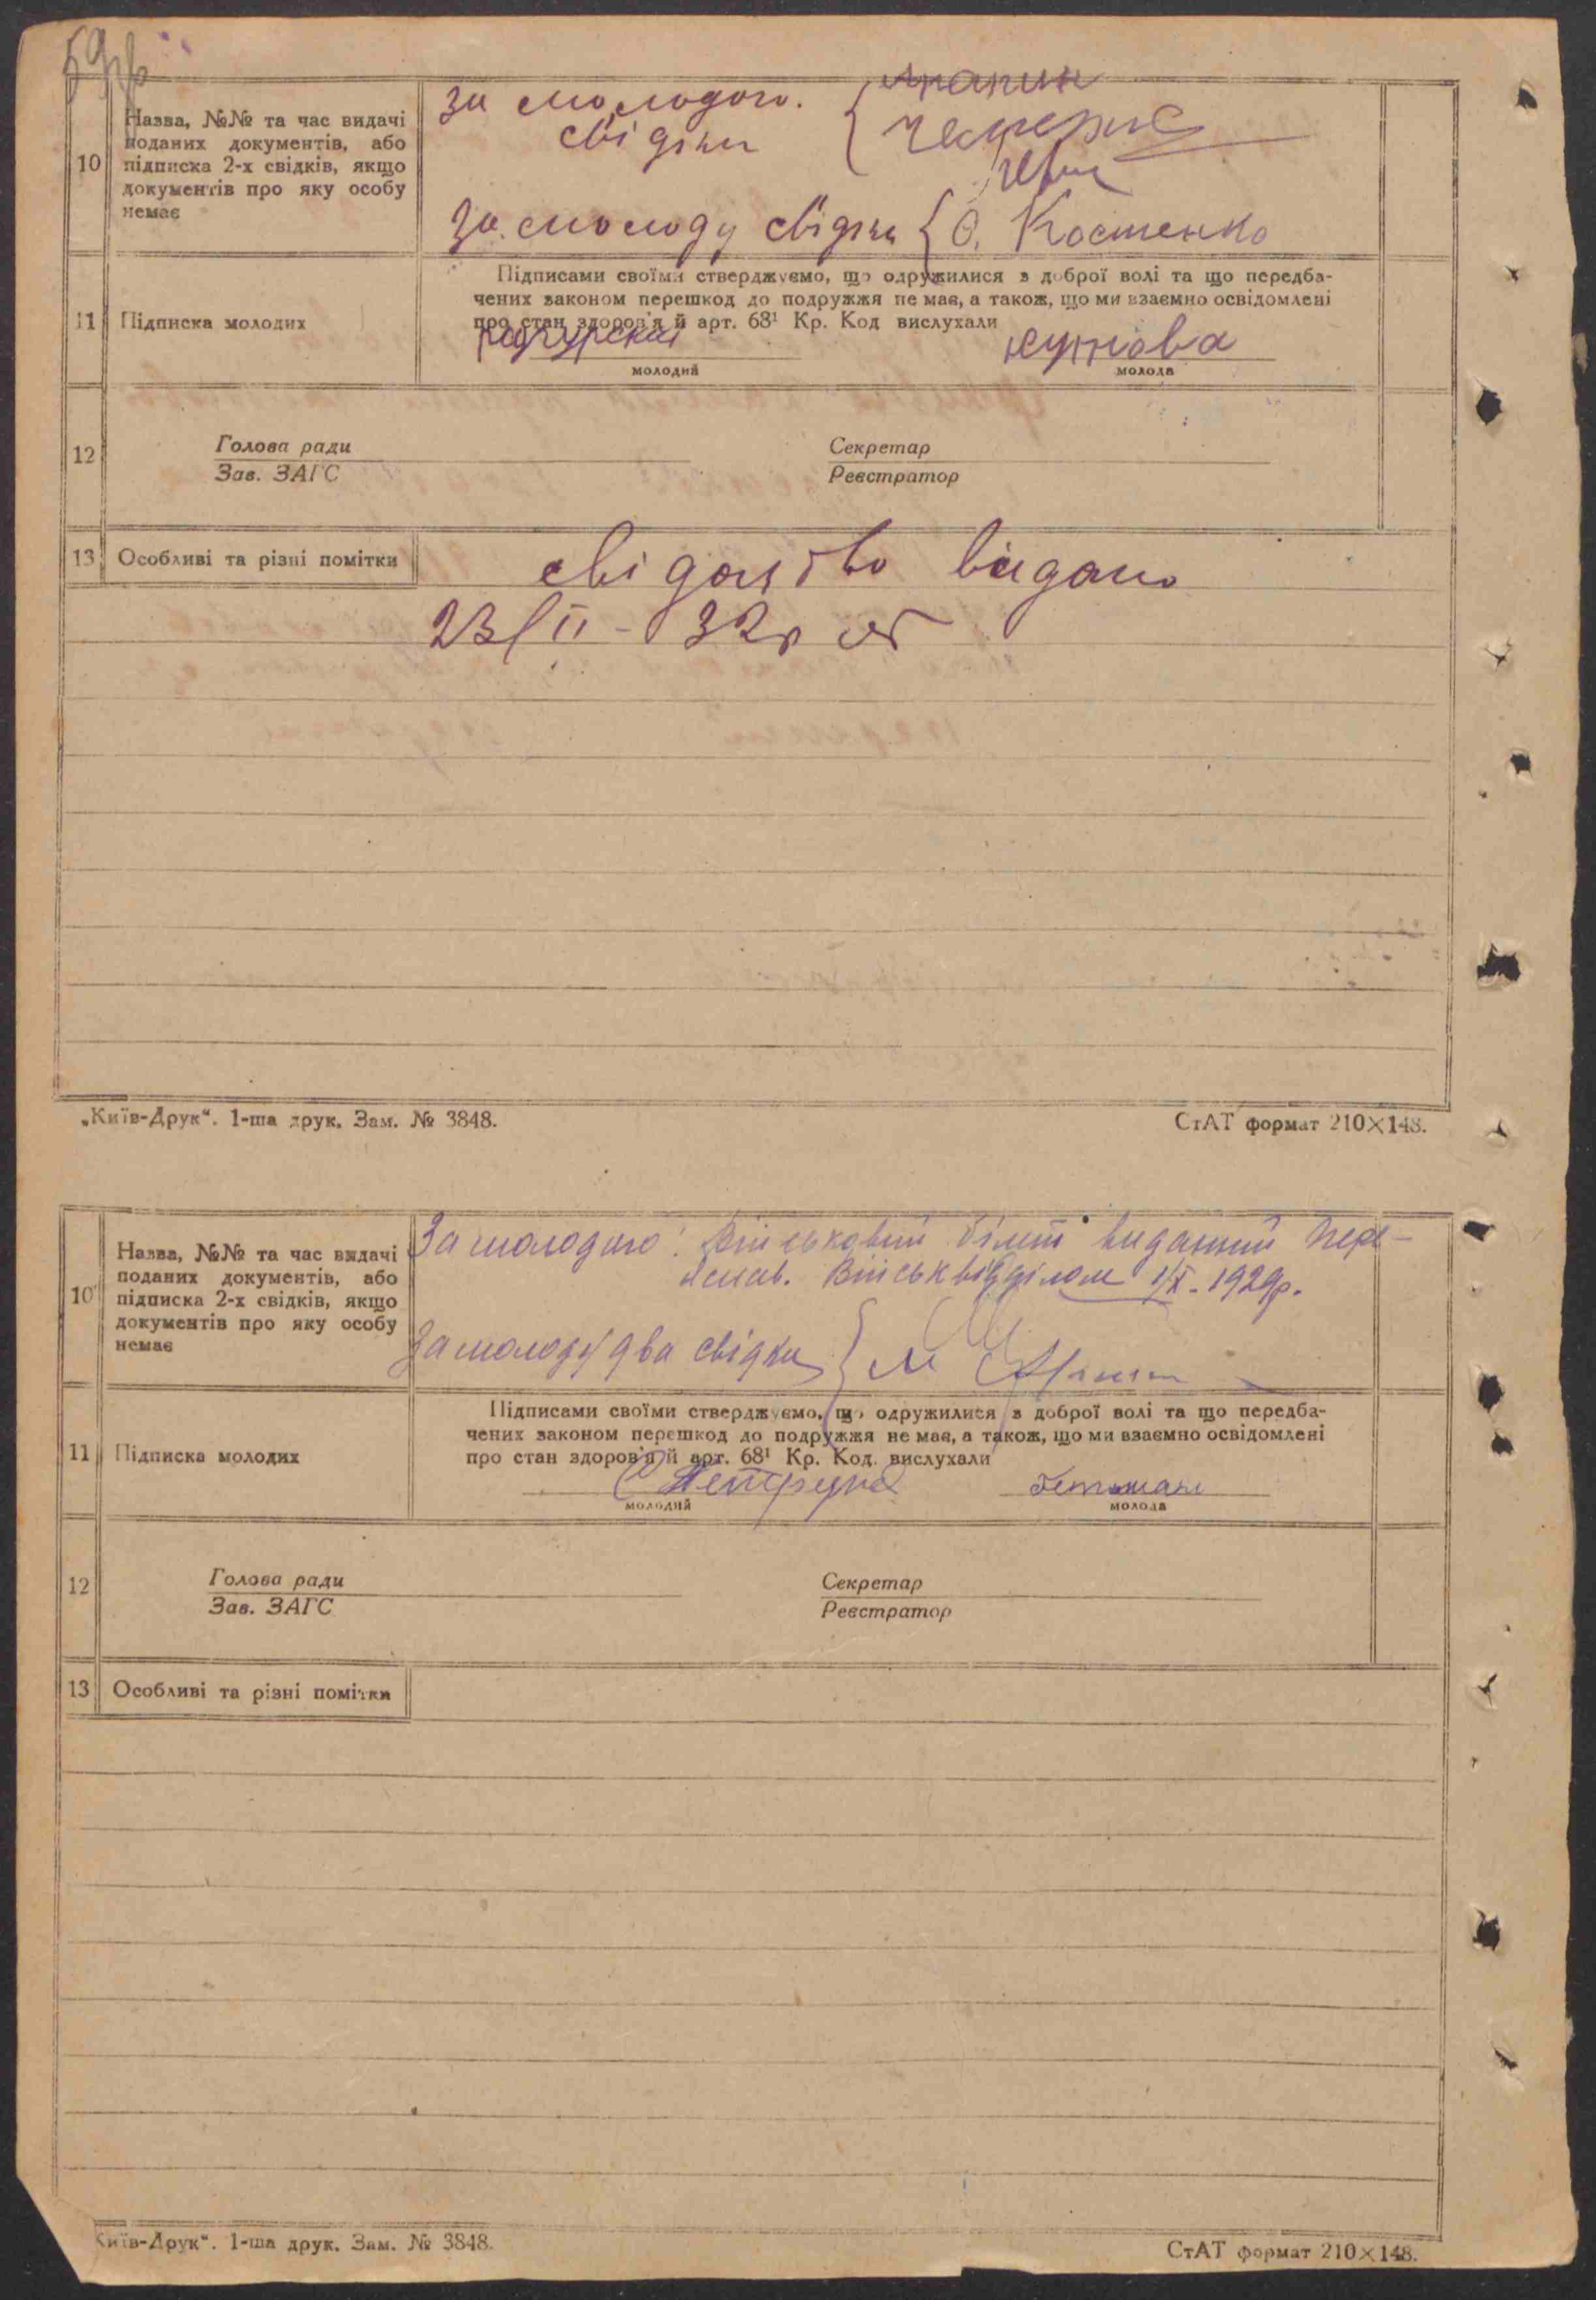 10
Назва, №№ та час видачі
поданих документів, або
підписка 2-х свідків, якщо
документів про яку особу
немає
За молодого.
свідки
За молоду свідки { О. Костенко
11
Підписка молодих
Підписами своїми стверджуємо, що одружилися з доброї волі та що передба-
чених законом перешкод до подружжя не має, а також, що ми взаємно освідомлені
про стан здоров'я й арт. 68¹ Кр. Код вислухали
молодий
молода
12
Голова ради
Зав. ЗАГС
Секретар
Реєстратор
13
Особливі та різні помітки
свідоцтво видано
23/II - 32р
„Київ-Друк“. 1-ша друк. Зам. № 3848.
СтАТ формат 210×148.
10
Назва, №№ та час видачі
поданих документів, або
підписка 2-х свідків, якщо
документів про яку особу
немає
За молодого: Військовий білет виданий Пере-
яслав. Військвідділом 1/X - 1929р.
За молоду два свідки {
11
Підписка молодих
Підписами своїми стверджуємо, що одружилися з доброї волі та що передба-
чених законом перешкод до подружжя не має, а також, що ми взаємно освідомлені
про стан здоров'я й арт. 68¹ Кр. Код. вислухали
Гетьман
молодий
молода
12
Голова ради
Зав. ЗАГС
Секретар
Реєстратор
13
Особливі та різні помітки
Київ-Друк“. 1-ша друк. Зам. № 3848.
СтАТ формат 210×148.